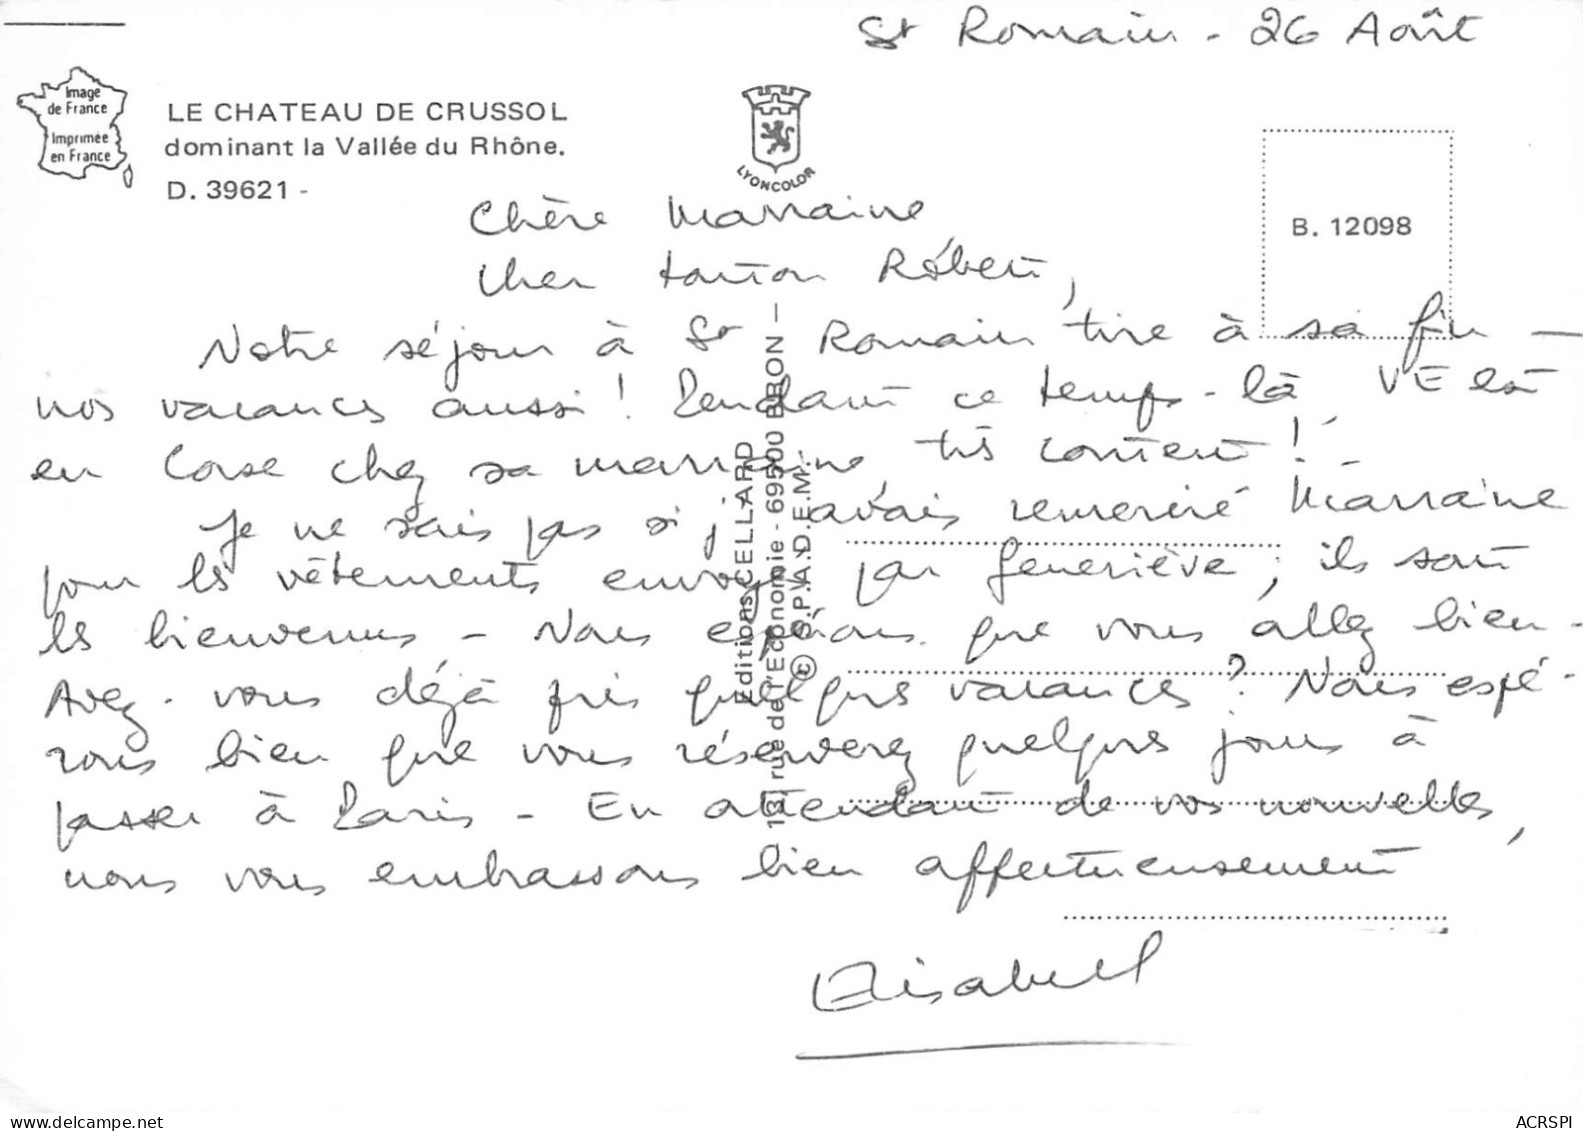 St Romain - 26 Août
Image
de France
Imprimée
en France
LE CHATEAU DE CRUSSOL
dominant la Vallée du Rhône.
D. 39621 -
LYONCOLOR
B. 12098
Chère Marraine
Cher tonton Robert,
Notre séjour à St Romain tire à sa fin -
nos vacances aussi ! Pendant ce temps-là, VE est
en Corse chez sa marraine, très content ! -
Je ne sais pas si j'avais remercié Marraine
pour les vêtements envoyés par Geneviève, ils sont
les bienvenus - Nous espérons que vous allez bien -
Avez-vous déjà pris quelques vacances ? Nous espé-
rons bien que vous réserverez quelques jours à
passer à Paris - En attendant de vos nouvelles,
nous vous embrassons bien affectueusement
Elisabeth
Editions CELLARD
131 rue de l'Economie - 69500 BRON -
© S.P.A.D.E.M.
delcampe.net
ACRSPI